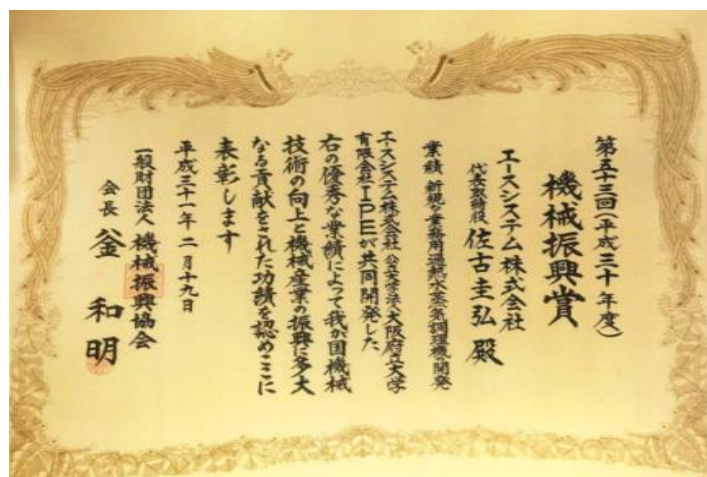 第五十三回(平成三十年度)
機械振興賞
エースシステム株式会社
代表取締役 佐古圭弘 殿
業績 新規な業務用過熱水蒸気調理機開発
エースシステム株式会社 公立大学法人大阪府立大学
有限会社IPEが共同開発した
右の優秀な業績によって我が国機械
技術の向上と機械産業の振興に多大
なる貢献をされた功績を認めここに
表彰します
平成三十一年 二月十九日
一般財団法人 機械振興協会
会長 釡 和明